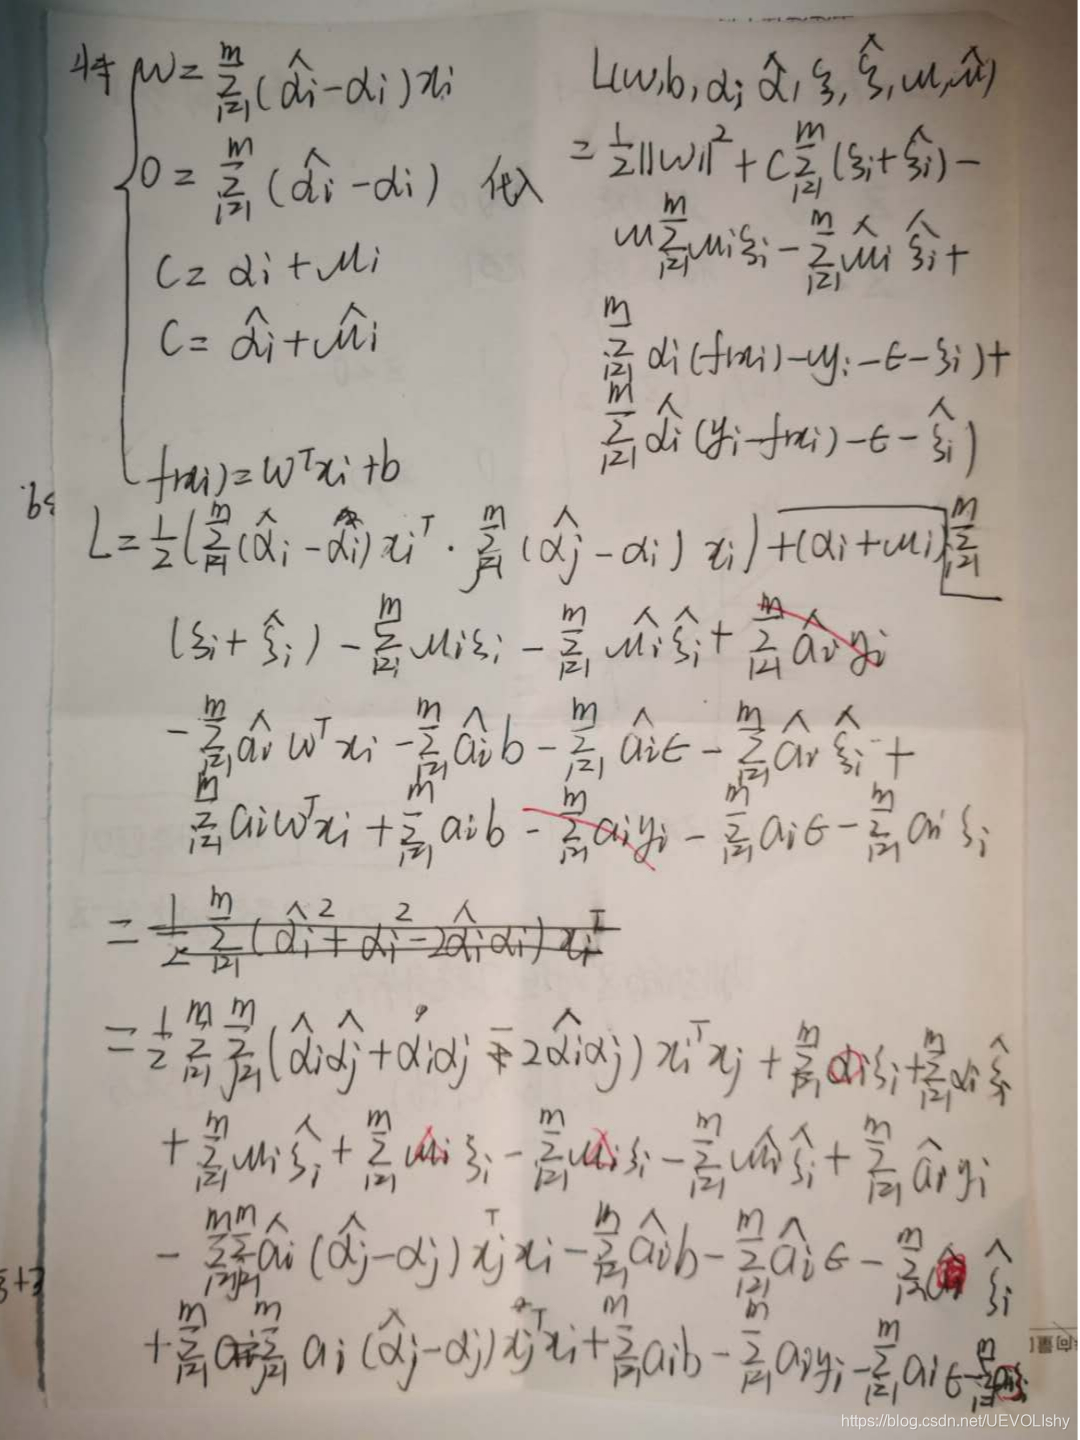 将 w = \sum_{i=1}^{m} (\hat{α}_i - α_i) x_i
0 = \sum_{i=1}^{m} (\hat{α}_i - α_i) 代入
C = α_i + μ_i
C = \hat{α}_i + \hat{μ}_i
f(x_i) = w^T x_i + b
L(w, b, α, \hat{α}, ξ, \hat{ξ}, μ, \hat{μ})
= \frac{1}{2} ||w||^2 + C \sum_{i=1}^{m} (ξ_i + \hat{ξ}_i) -
μ \sum_{i=1}^{m} μ_i ξ_i - \sum_{i=1}^{m} \hat{μ}_i \hat{ξ}_i +
\sum_{i=1}^{m} α_i (f(x_i) - y_i - ϵ - ξ_i) +
\sum_{i=1}^{m} \hat{α}_i (y_i - f(x_i) - ϵ - \hat{ξ}_i)
L = \frac{1}{2} ( \sum_{i=1}^{m} (\hat{α}_i - α_i) x_i^T · \sum_{j=1}^{m} (\hat{α}_j - α_i) x_i ) + (α_i + μ_i) \sum_{i=1}^{m}
(ξ_i + \hat{ξ}_i) - \sum_{i=1}^{m} μ_i ξ_i - \sum_{i=1}^{m} \hat{μ}_i \hat{ξ}_i + \sum_{i=1}^{m} \hat{a}_i y_i
- \sum_{i=1}^{m} \hat{a}_i w^T x_i - \sum_{i=1}^{m} \hat{a}_i b - \sum_{i=1}^{m} \hat{a}_i ϵ - \sum_{i=1}^{m} \hat{a}_i \hat{ξ}_i +
\sum_{i=1}^{m} a_i w^T x_i + \sum_{i=1}^{m} a_i b - \sum_{i=1}^{m} a_i y_i - \sum_{i=1}^{m} a_i ϵ - \sum_{i=1}^{m} a_i ξ_i
= \frac{1}{2} \sum_{i=1}^{m} (\hat{α}_i^2 + α_i^2 - 2\hat{α}_i α_i) x_i^T
= \frac{1}{2} \sum_{i=1}^{m} \sum_{j=1}^{m} (\hat{α}_i \hat{α}_j + α_i α_j - 2\hat{α}_i α_j) x_i^T x_j + \sum_{i=1}^{m} α_i ξ_i + \sum_{i=1}^{m} α_i \hat{ξ}_i
+ \sum_{i=1}^{m} μ_i \hat{ξ}_i + \sum_{i=1}^{m} μ_i ξ_i - \sum_{i=1}^{m} μ_i ξ_i - \sum_{i=1}^{m} \hat{μ}_i \hat{ξ}_i + \sum_{i=1}^{m} \hat{a}_i y_i
- \sum_{i=1}^{m} \sum_{j=1}^{m} \hat{a}_i (\hat{α}_j - α_j) x_j^T x_i - \sum_{i=1}^{m} \hat{a}_i b - \sum_{i=1}^{m} \hat{a}_i ϵ - \sum_{i=1}^{m} \hat{ξ}_i
+ \sum_{i=1}^{m} \sum_{j=1}^{m} a_i (\hat{α}_j - α_j) x_j^T x_i + \sum_{i=1}^{m} a_i b - \sum_{i=1}^{m} a_i y_i - \sum_{i=1}^{m} a_i ϵ - \sum_{i=1}^{m} a_i ξ_i
https://blog.csdn.net/UEVOLIshy